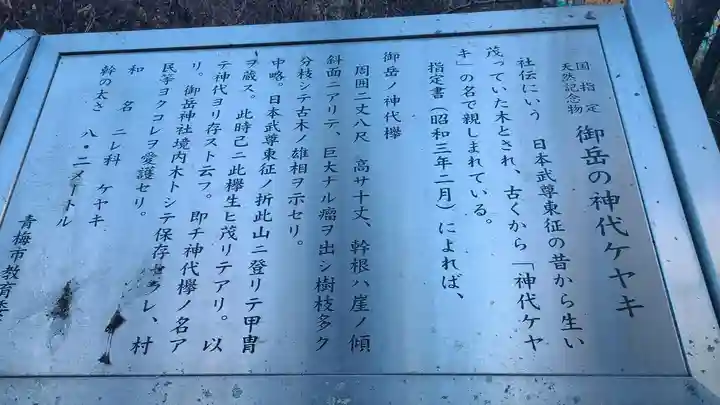 国指定
天然記念物
御岳の神代ケヤキ
社伝にいう 日本武尊東征の昔から生い
茂っていた木とされ、古くから「神代ケヤ
キ」の名で親しまれている。
指定書(昭和三年二月)によれば、
御岳ノ神代欅
周囲二丈八尺 高サ十丈、幹根ハ崖ノ傾
斜面ニアリテ、巨大ナル瘤ヲ出シ樹枝多ク
分枝シテ古木ノ雄相ヲ示セリ。
中略。日本武尊東征ノ折此山ニ登リテ甲冑
ヲ蔵ス。此時已ニ此欅生ヒ茂リテアリ。以
テ神代ヨリ存スト云フ。即チ神代欅ノ名ア
リ。御岳神社境内木トシテ保存セラレ、村
民等ヨクコレヲ愛護セリ。
和 名 ニレ科 ケヤキ
幹の太さ 八・二メートル
青梅市教育委